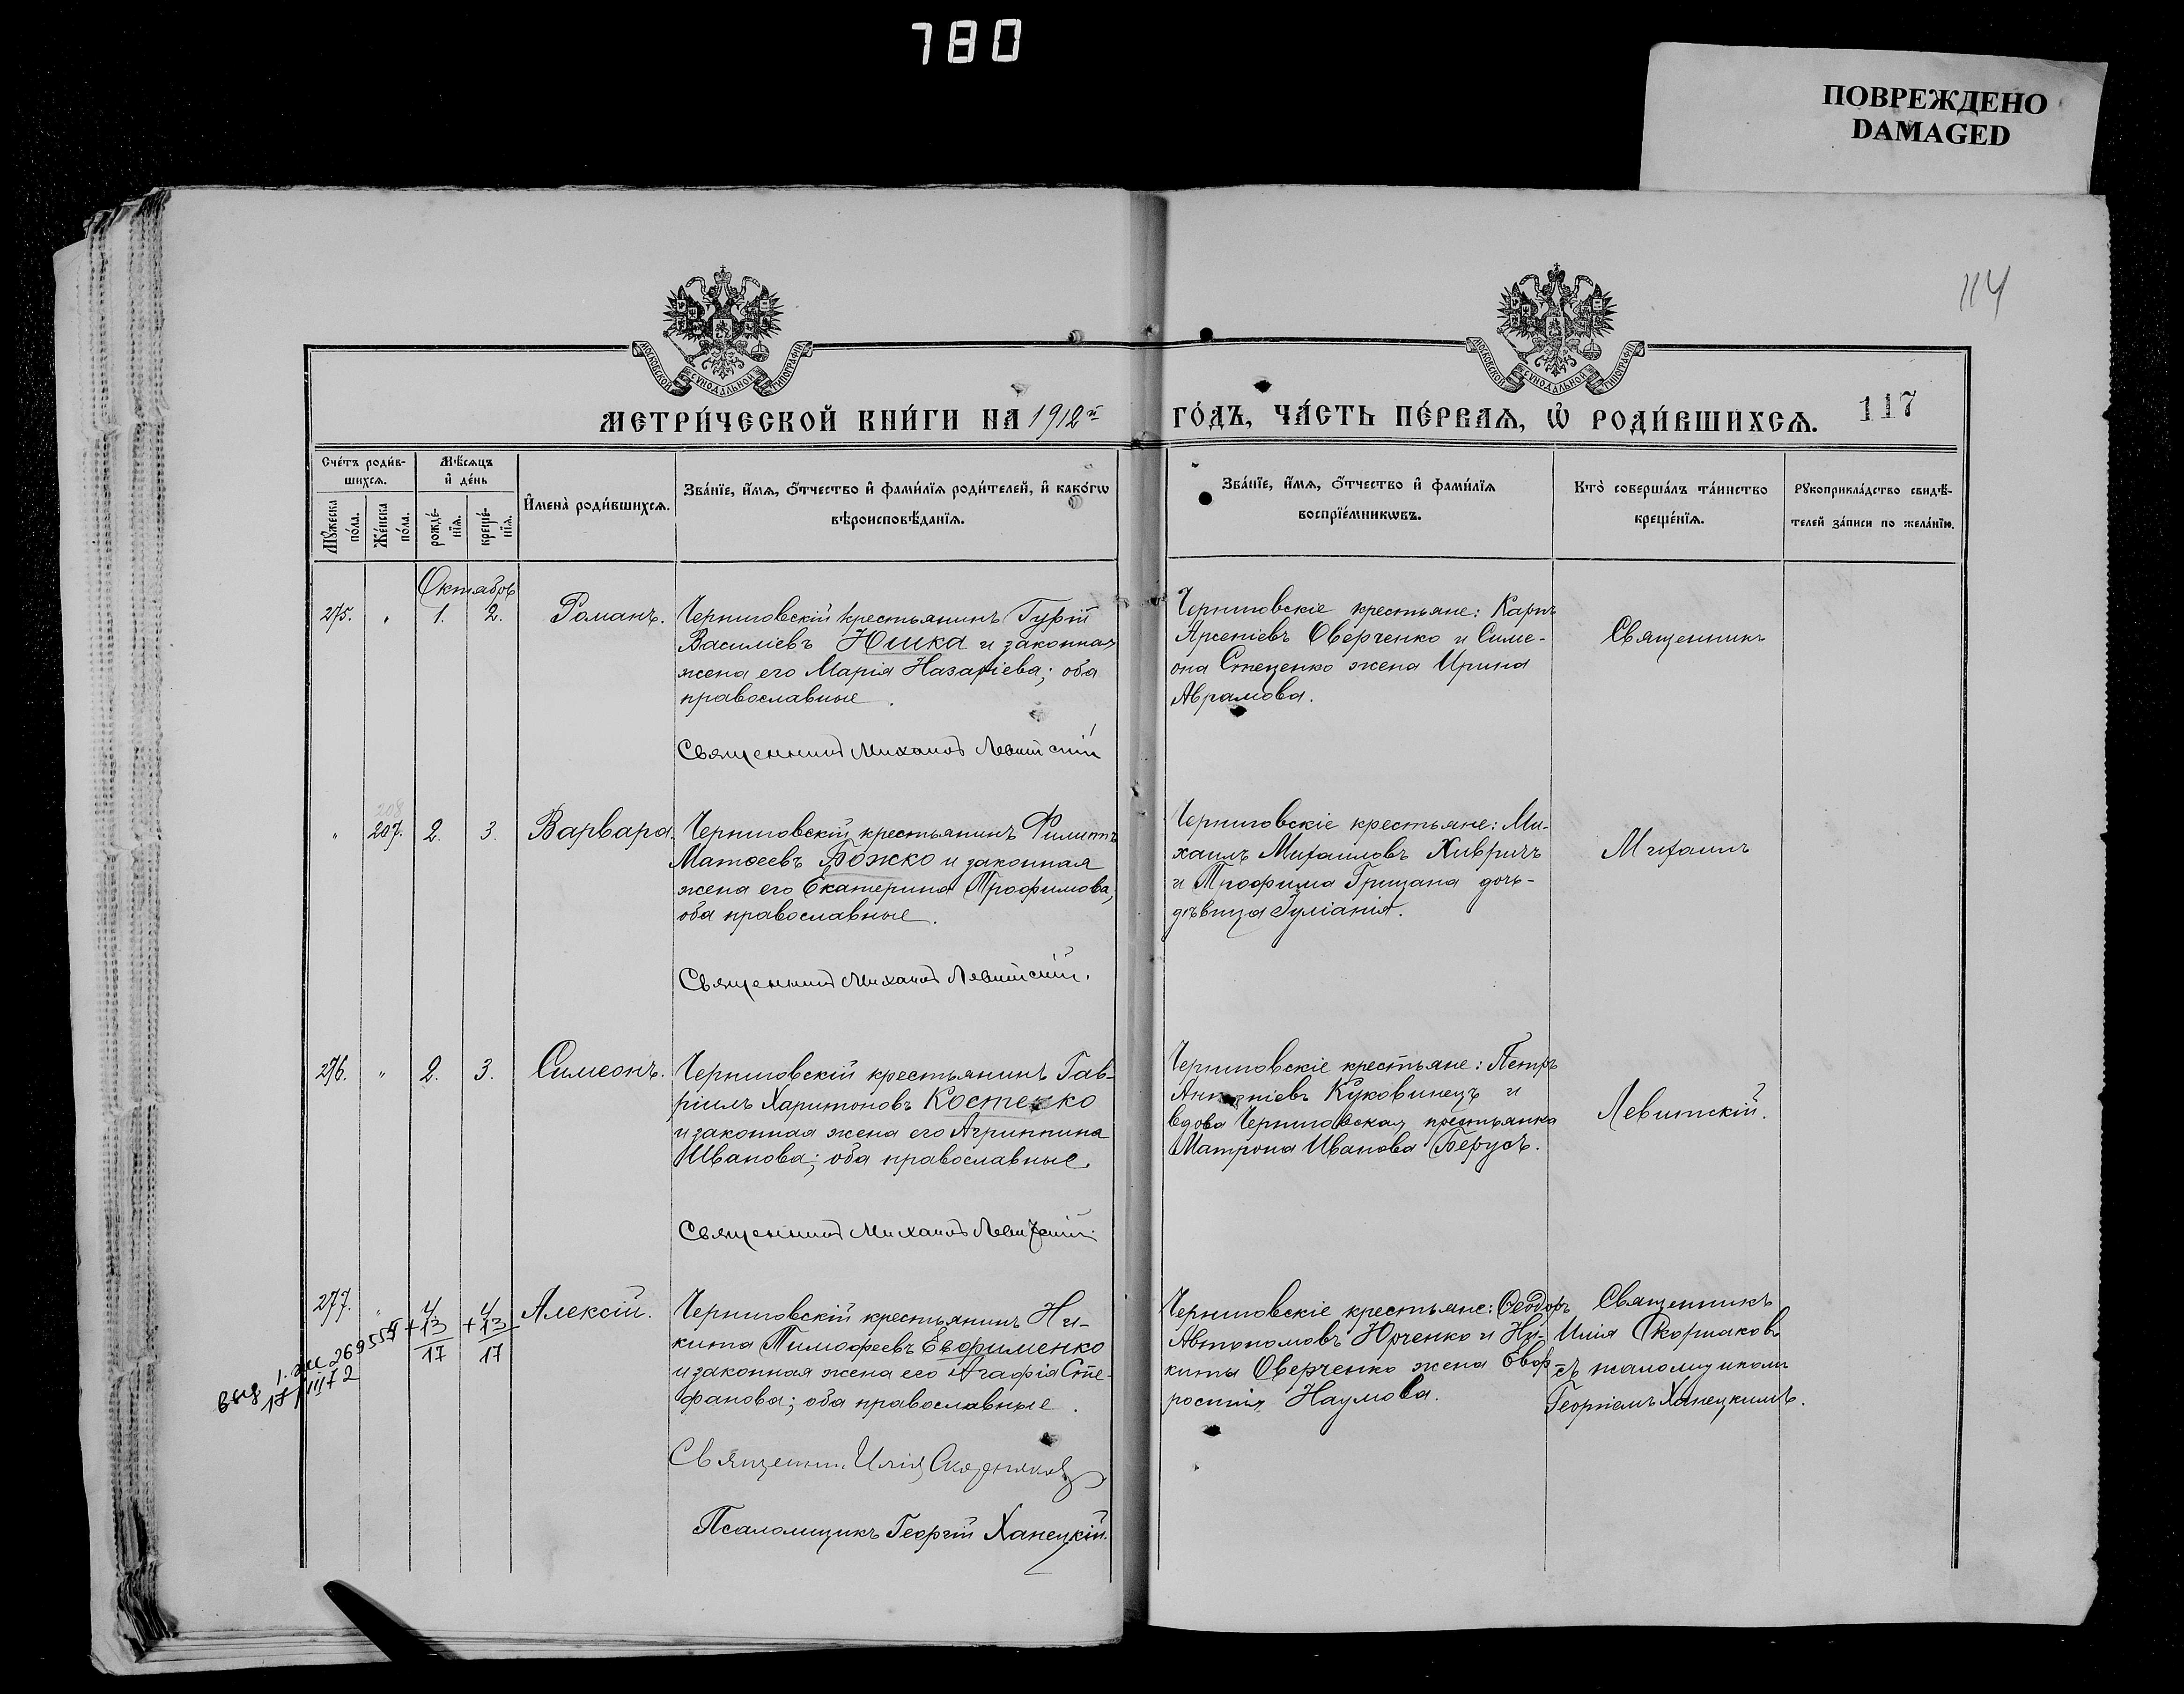 780
ПОВРЕЖДЕНО
DAMAGED
114
МОСКОВСКОЙ СѴНОДАЛЬНОЙ ТИПОГРАФІИ
МОСКОВСКОЙ СѴНОДАЛЬНОЙ ТИПОГРАФІИ
МЕТРИ́ЧЕСКОЙ КНИ́ГИ НА 1912й ГО́ДЪ, ЧА́СТЬ ПЕ́РВАѦ, Ѡ҆ РОДИ́ВШИХСѦ. 117
Сче́тъ роди́в-
шихсѧ.
Мꙋ́жеска
по́ла.
Же́нска
по́ла.
Мѣ́сѧцъ
и҆ де́нь
рожде́-
нїѧ.
креще́-
нїѧ.
И҆мена̀ роди́вшихсѧ.
Зва́нїе, и҆́мѧ, ѻ҆́тчество и҆ фами́лїѧ роди́телей, и҆ како́гѡ
вѣроисповѣ́данїѧ.
Зва́нїе, и҆́мѧ, ѻ҆́тчество и҆ фами́лїѧ
воспрїе́мникѡвъ.
Кто̀ соверша́лъ та́инство
креще́нїѧ.
Рꙋкоприкла́дство свидѣ́-
телей за́писи по жела́нїю.
Октябрь
275. " 1. 2. Романъ.
Черниговскій крестьянинъ Гурій
Василіевъ Юшка и законная
жена его Марія Назаріева; оба
православные.
Священникъ Михаилъ Левитскій
Черниговскіе крестьяне: Карпъ
Арсеніевъ Оверченко и Симе-
она Стеценко жена Ирина
Аврамова.
Священникъ
" 208
207. 2. 3. Варвара.
Черниговскій крестьянинъ Филиппъ
Матѳеевъ Божко и законная
жена его Екатерина Трофимова;
оба православные.
Священникъ Михаилъ Левитскій.
Черниговскіе крестьяне: Ми-
хаилъ Михаиловъ Хивричъ
и Трофима Грицана дочь-
дѣвица Іуліанія.
Михаилъ
276. " 2. 3. Симеонъ.
Черниговскій крестьянинъ Гав-
ріилъ Харитоновъ Костенко
и законная жена его Агриппина
Иванова; оба православные.
Священникъ Михаилъ Левитскій.
Черниговскіе крестьяне: Петръ
Антоніевъ Куковинецъ и
вдова Черниговская крестьянка
Матрона Иванова Берусъ.
Левитскій.
277. " 4 4 Алексій.
+13 +13
17 17
269554
17/III 72
Черниговскій крестьянинъ Ни-
кита Тимоѳеевъ Евфименко
и законная жена его Агафія Сте-
фанова; оба православные.
Священник Илія Скорняковъ
Псаломщикъ Георгій Ханецкій.
Черниговскіе крестьяне: Ѳеодоръ
Автономовъ Юрченко и Ни-
киты Оверченко жена Евф-
росинія Наумова.
Священникъ
Илія Скорняковъ
съ псаломщикомъ
Георгіемъ Ханецкимъ.